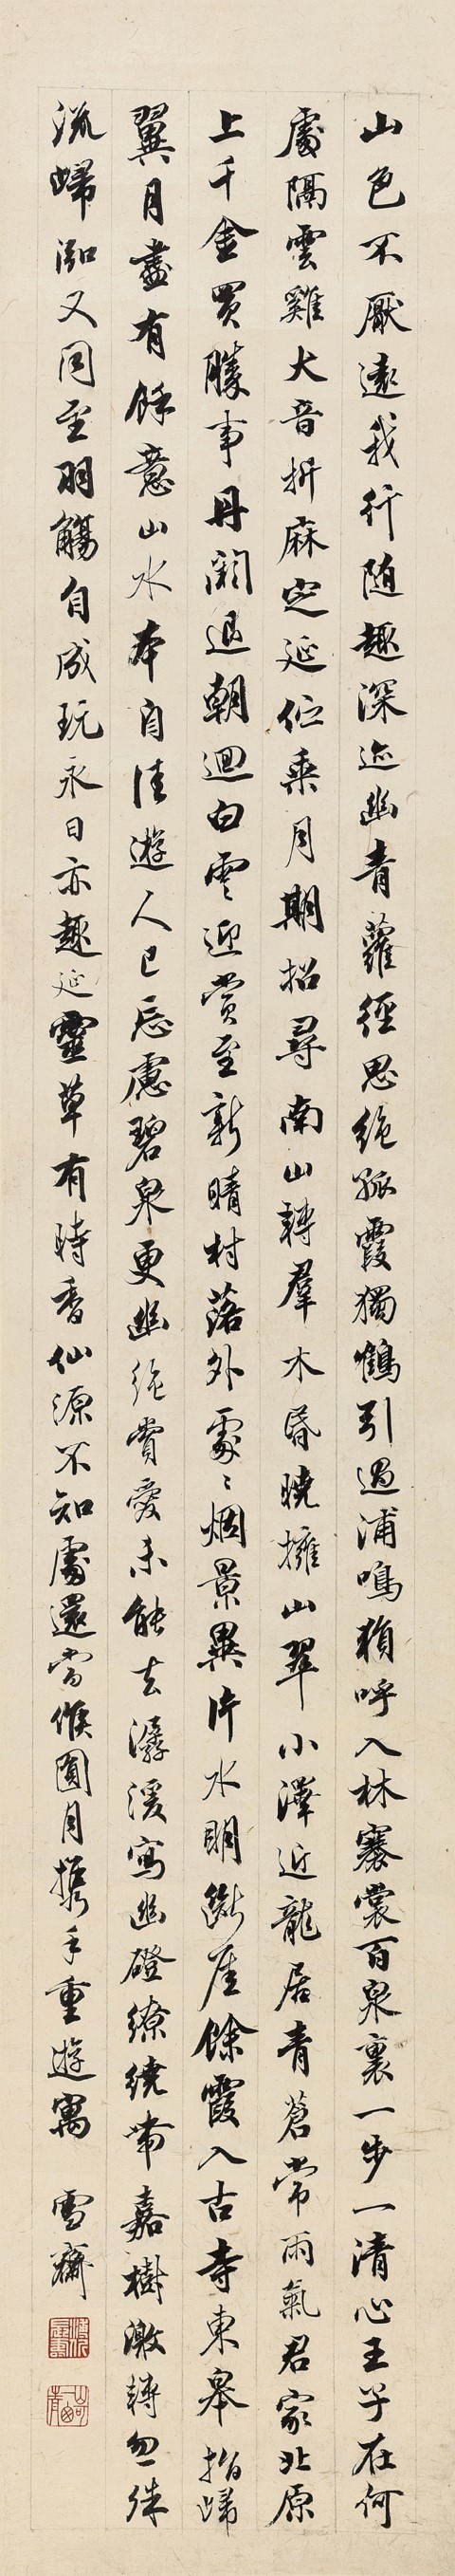 山色不厭遠我行隨趣深迹幽青蘿徑思絕孤霞獨鶴引過浦鳴猿呼入林褰裳百泉裏一步一清心王子在何
處隔雲雞犬音折麻定延佇乘月期招尋南山轉羣木昏曉擁山翠小澤近龍居青蒼常雨氣君家北原
上千金買勝事丹闕退朝迴白雲迎賞至新晴村落外處〻烟景異片水明斷崖餘霞入古寺東皋指歸
翼月盡有餘意山水本自佳遊人已忘慮碧泉更幽絕賞愛未能去潺湲寫幽磴繚繞帶嘉樹激轉忽殊
流歸泓又同至羽觴自成玩永日亦趣延靈草有時香仙源不知處還當候圓月攜手重遊寓 雪齋